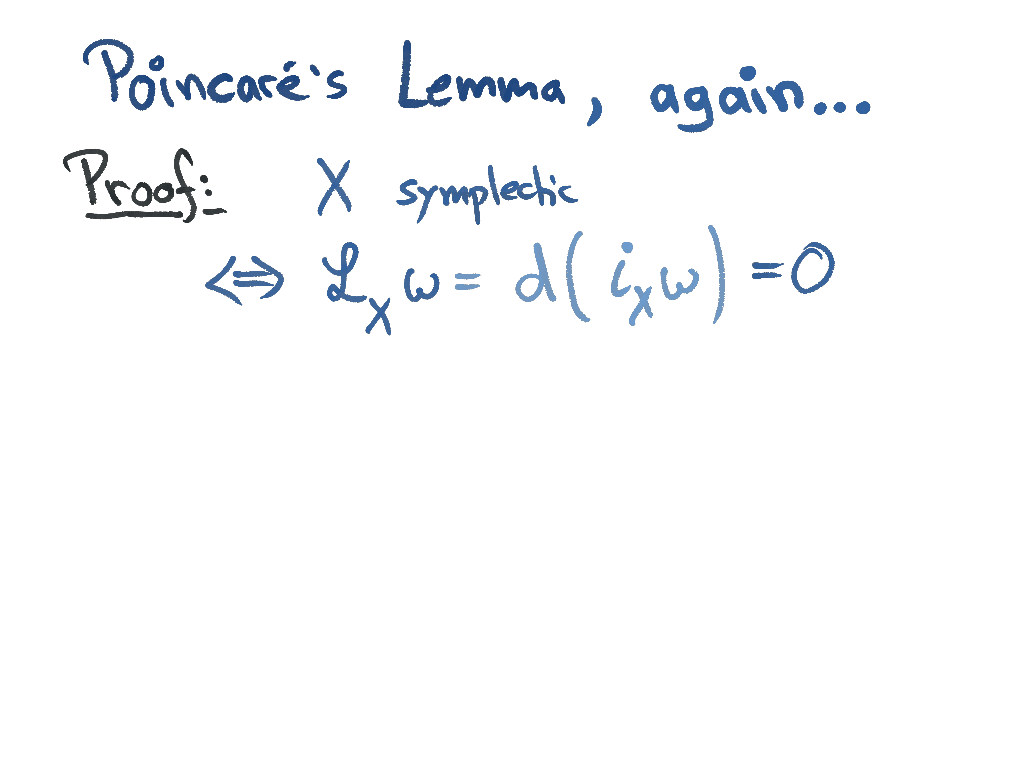 Poincaré's Lemma, again...
Proof: X symplectic
⟺ ℒ_X ω = d(i_X ω) = 0